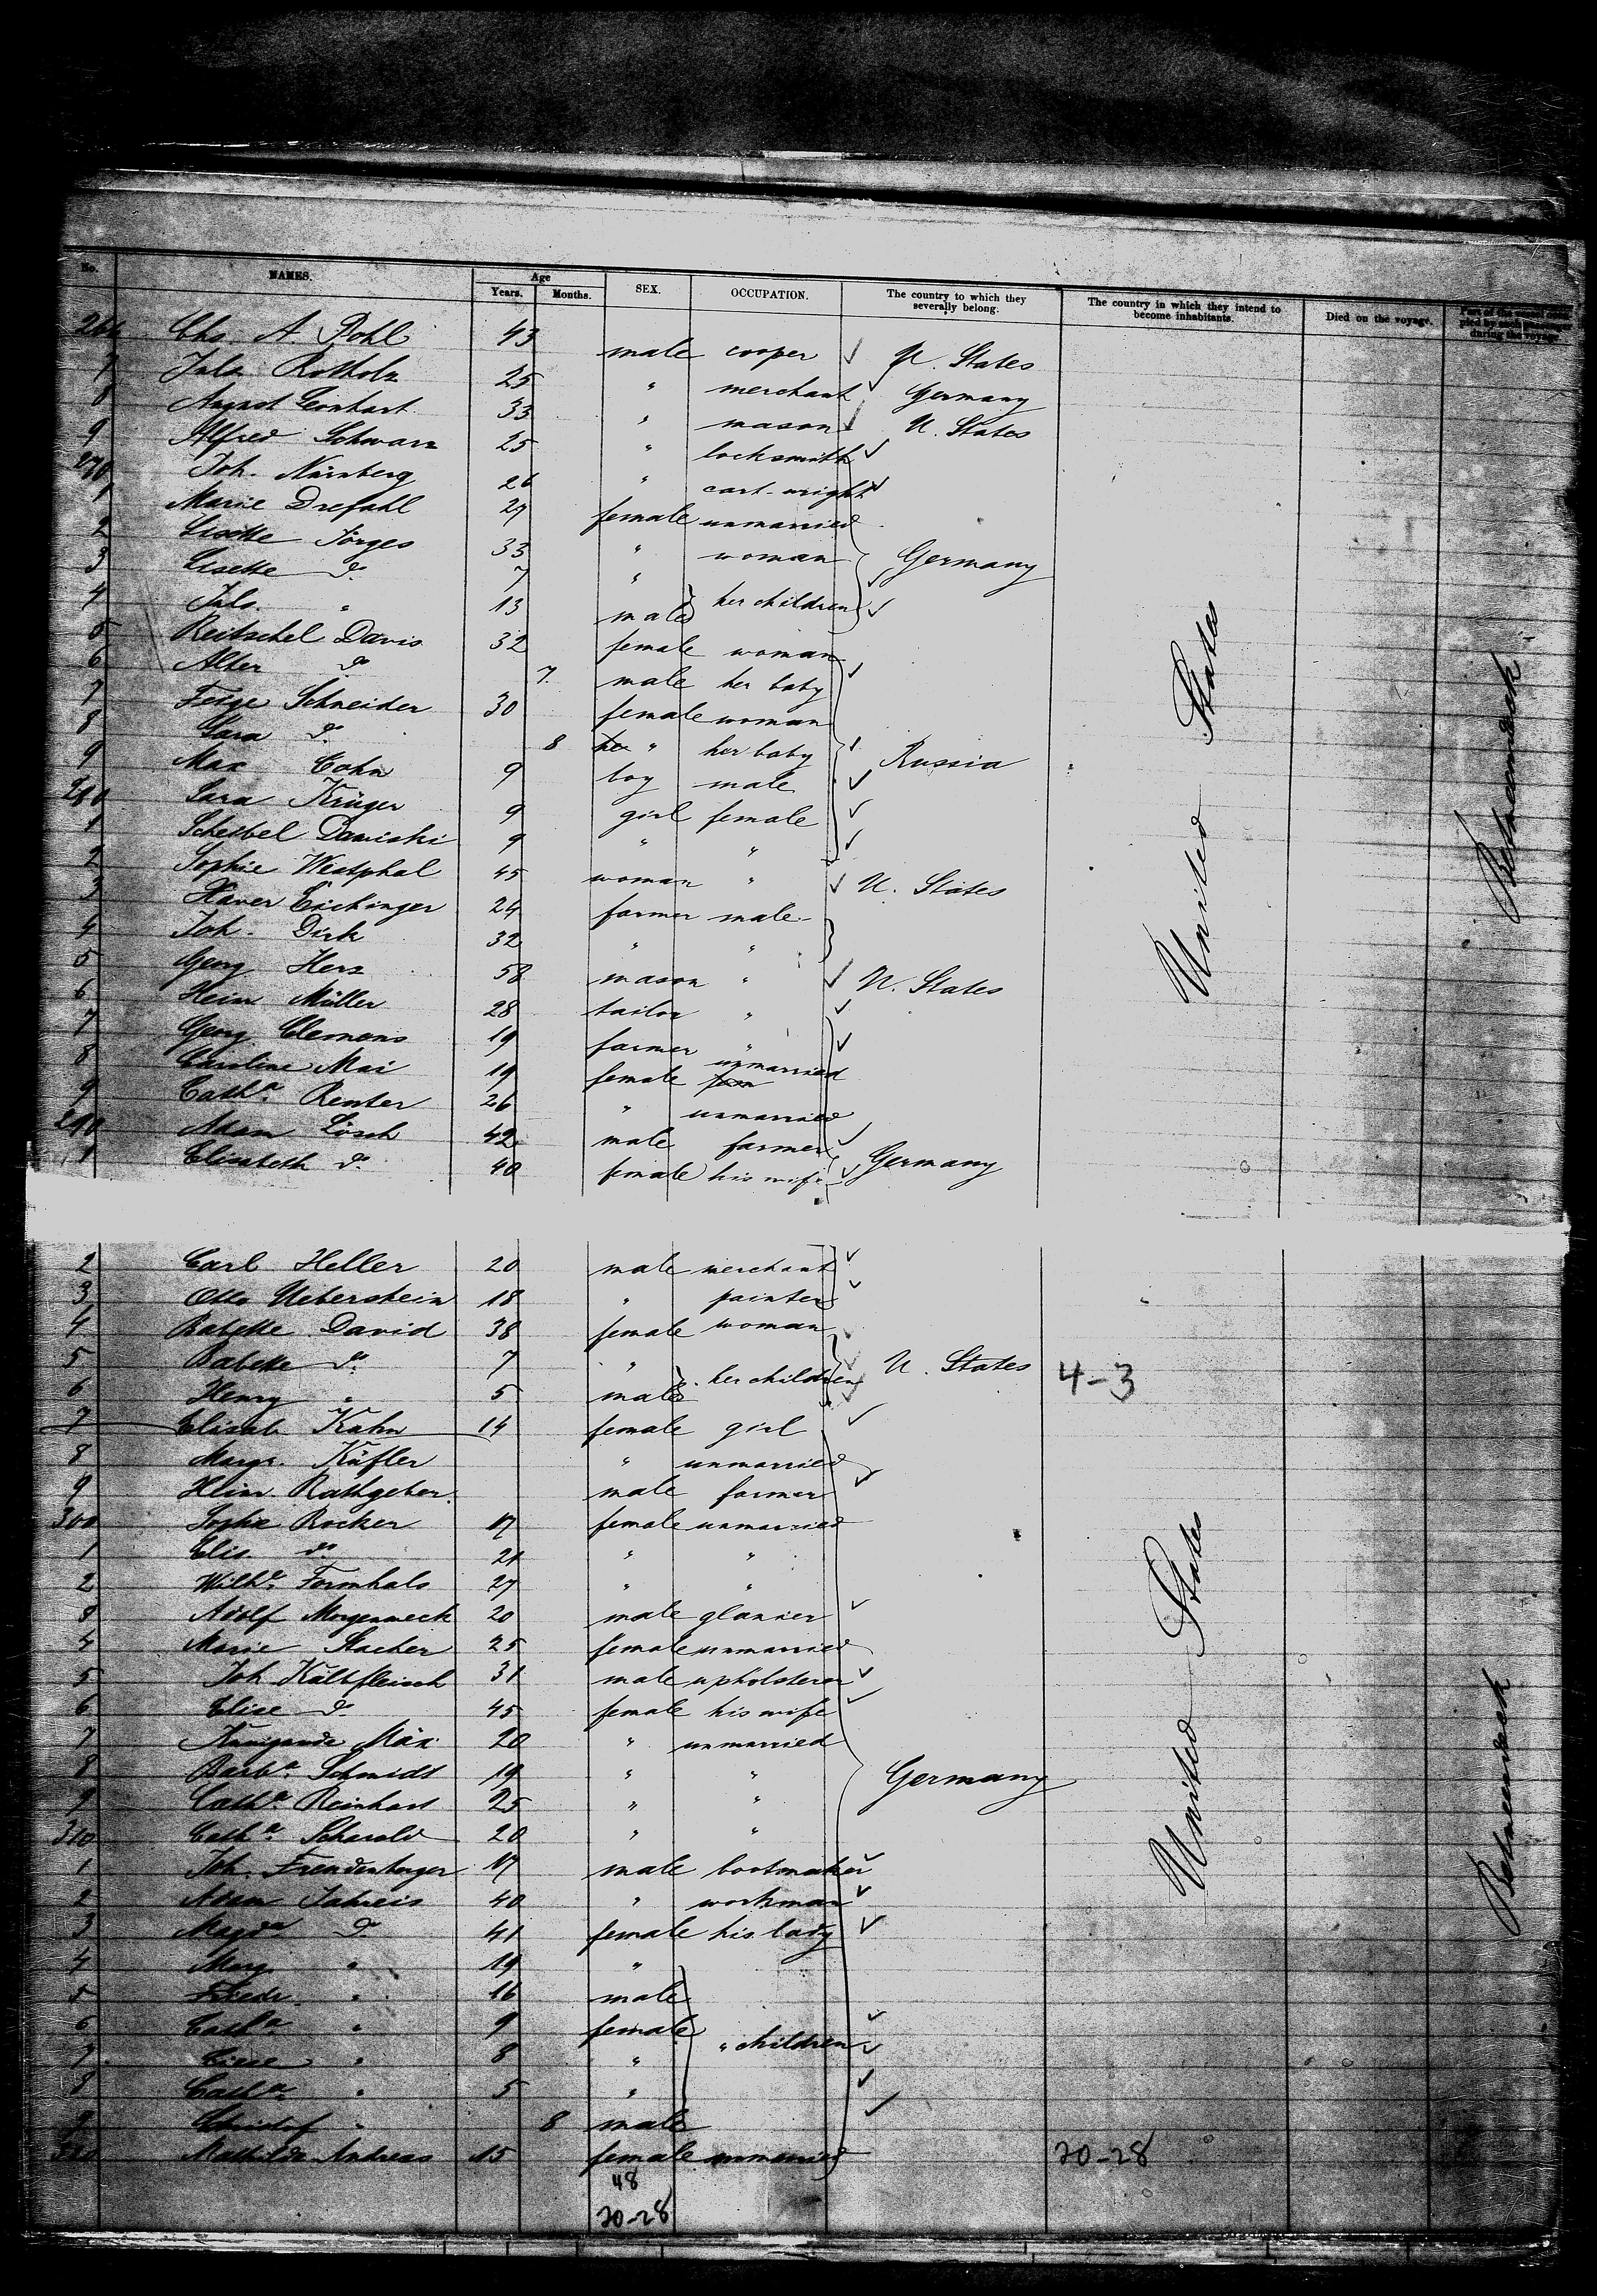 No. NAMES. Age Years. Months. SEX. OCCUPATION. The country to which they severally belong. The country in which they intend to become inhabitants. Died on the voyage. Part of the vessel occupied by each passenger during the voyage.
266 Chs. A. Pohl 43 male cooper ✓ U. States
7 Juls. Rotholz 25 " merchant ✓ Germany
8 August Leonhart 33 " mason ✓ U. States
9 Alfred Schwarz 25 " locksmith ✓
270 Joh. Nürnberg 26 " cart-wright ✓
1 Marie Drefahl 27 female unmarried
2 Lisette Jörges 33 " woman Germany
3 Lisette do 7 " her children ✓
4 Juls. " 13 male ✓
5 Reitschel Davis 32 female woman
6 Alter do 7 male her baby ✓
7 Feige Schneider 30 female woman
8 Sara do 8 " her baby ✓ Russia
9 Max Cohn 9 boy male ✓
280 Sara Krüger 9 girl female ✓
1 Scheibel Daniski 9 " " ✓
2 Sophie Westphal 45 woman " ✓ U. States
3 Xaver Eichinger 24 farmer male
4 Joh. Dirk 32 " "
5 Georg Herz 58 mason " ✓ U. States
6 Heinr Müller 28 tailor " ✓
7 Georg Clemens 19 farmer " ✓
8 Caroline Mai 19 female unmarried
9 Catha. Renter 26 " unmarried
290 Adam Lösch 42 male farmer ✓
1 Elisabeth do 40 female his wife ✓ Germany
United States
Betweendeck
2 Carl Heller 20 male merchant ✓
3 Otto Ueberstein 18 " painter ✓
4 Babette David 38 female woman
5 Babette do 7 " her children ✓ U. States 4-3
6 Henry " 5 male ✓
7 Elisab. Kahn 14 female girl ✓
8 Margr. Käfler " unmarried
9 Heinr. Rathgeber male farmer ✓
300 Sophie Rocker 17 female unmarried
1 Elis. do 21 " "
2 Wilhe. Formhals 27 " "
3 Adolf Morgenweck 20 male glazier ✓
4 Marie Stacher 25 female unmarried
5 Joh Kaltfleisch 31 male upholsterer ✓
6 Elise do 45 female his wife ✓
7 Kunigunde Mäx 20 " unmarried
8 Barba. Schmidt 19 " " Germany
9 Catha. Reinhart 25 " "
310 Catha. Scharold 20 " "
1 Joh. Freudenberger 17 male bootmaker ✓
2 Adam Jahreis 40 " workman ✓
3 Magda do 41 female his lady ✓
4 Marg. " 19 "
5 Friedr. " 16 male
6 Catha " 9 female ✓
7 " 8 " " children ✓
8 Catha. " 5 " ✓
9 Christof " 8 male ✓
320 Mathilde Andreas 15 female unmarried 20-28
48
20-28
United States
Betweendeck